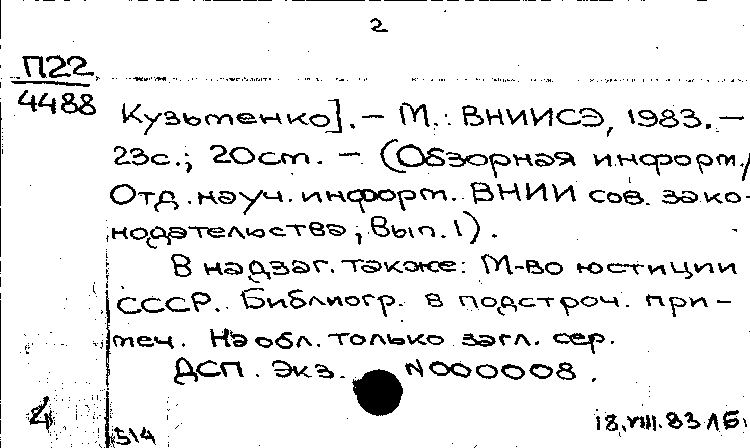 2
П22
4488
Кузьменко]. – М.: ВНИИСЭ, 1983. –
23с.; 20см. – (Обзорная информ./
Отд. науч. информ. ВНИИ сов. зако-
нодательства; Вып. 1).
В надзаг. также: М-во юстиции
СССР. Библиогр. в подстроч. при-
меч. На обл. только загл. сер.
ДСП. Экз. N000008.
514
18.VIII.83 ЛБ.